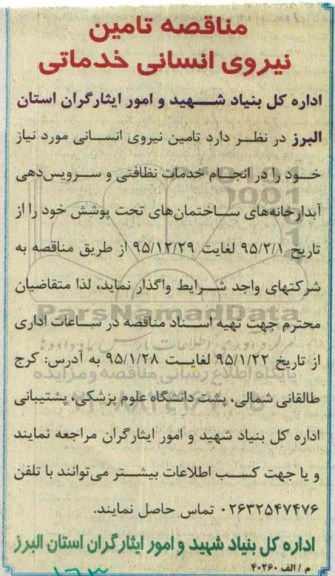 مناقصه تامین
نیروی انسانی خدماتی
اداره کل بنیاد شهید و امور ایثارگران استان
البرز در نظر دارد تامین نیروی انسانی مورد نیاز
خود را در انجام خدمات نظافتی و سرویس‌دهی
آبدارخانه‌های ساختمان‌های تحت پوشش خود را از
تاریخ ۹۵/۲/۱ لغایت ۹۵/۱۲/۲۹ از طریق مناقصه به
شرکتهای واجد شرایط واگذار نماید، لذا متقاضیان
محترم جهت تهیه اسناد مناقصه در ساعات اداری
از تاریخ ۹۵/۱/۲۲ لغایت ۹۵/۱/۲۸ به آدرس: کرج
طالقانی شمالی، پشت دانشگاه علوم پزشکی، پشتیبانی
اداره کل بنیاد شهید و امور ایثارگران مراجعه نمایند
و یا جهت کسب اطلاعات بیشتر می‌توانند با تلفن
۰۲۶۳۲۵۴۷۴۷۶ تماس حاصل نمایند.
اداره کل بنیاد شهید و امور ایثارگران استان البرز
م / الف ۴۰۲۶۰
۱۶۳
ParsNamadData
پایگاه اطلاع رسانی مناقصه و مزایده